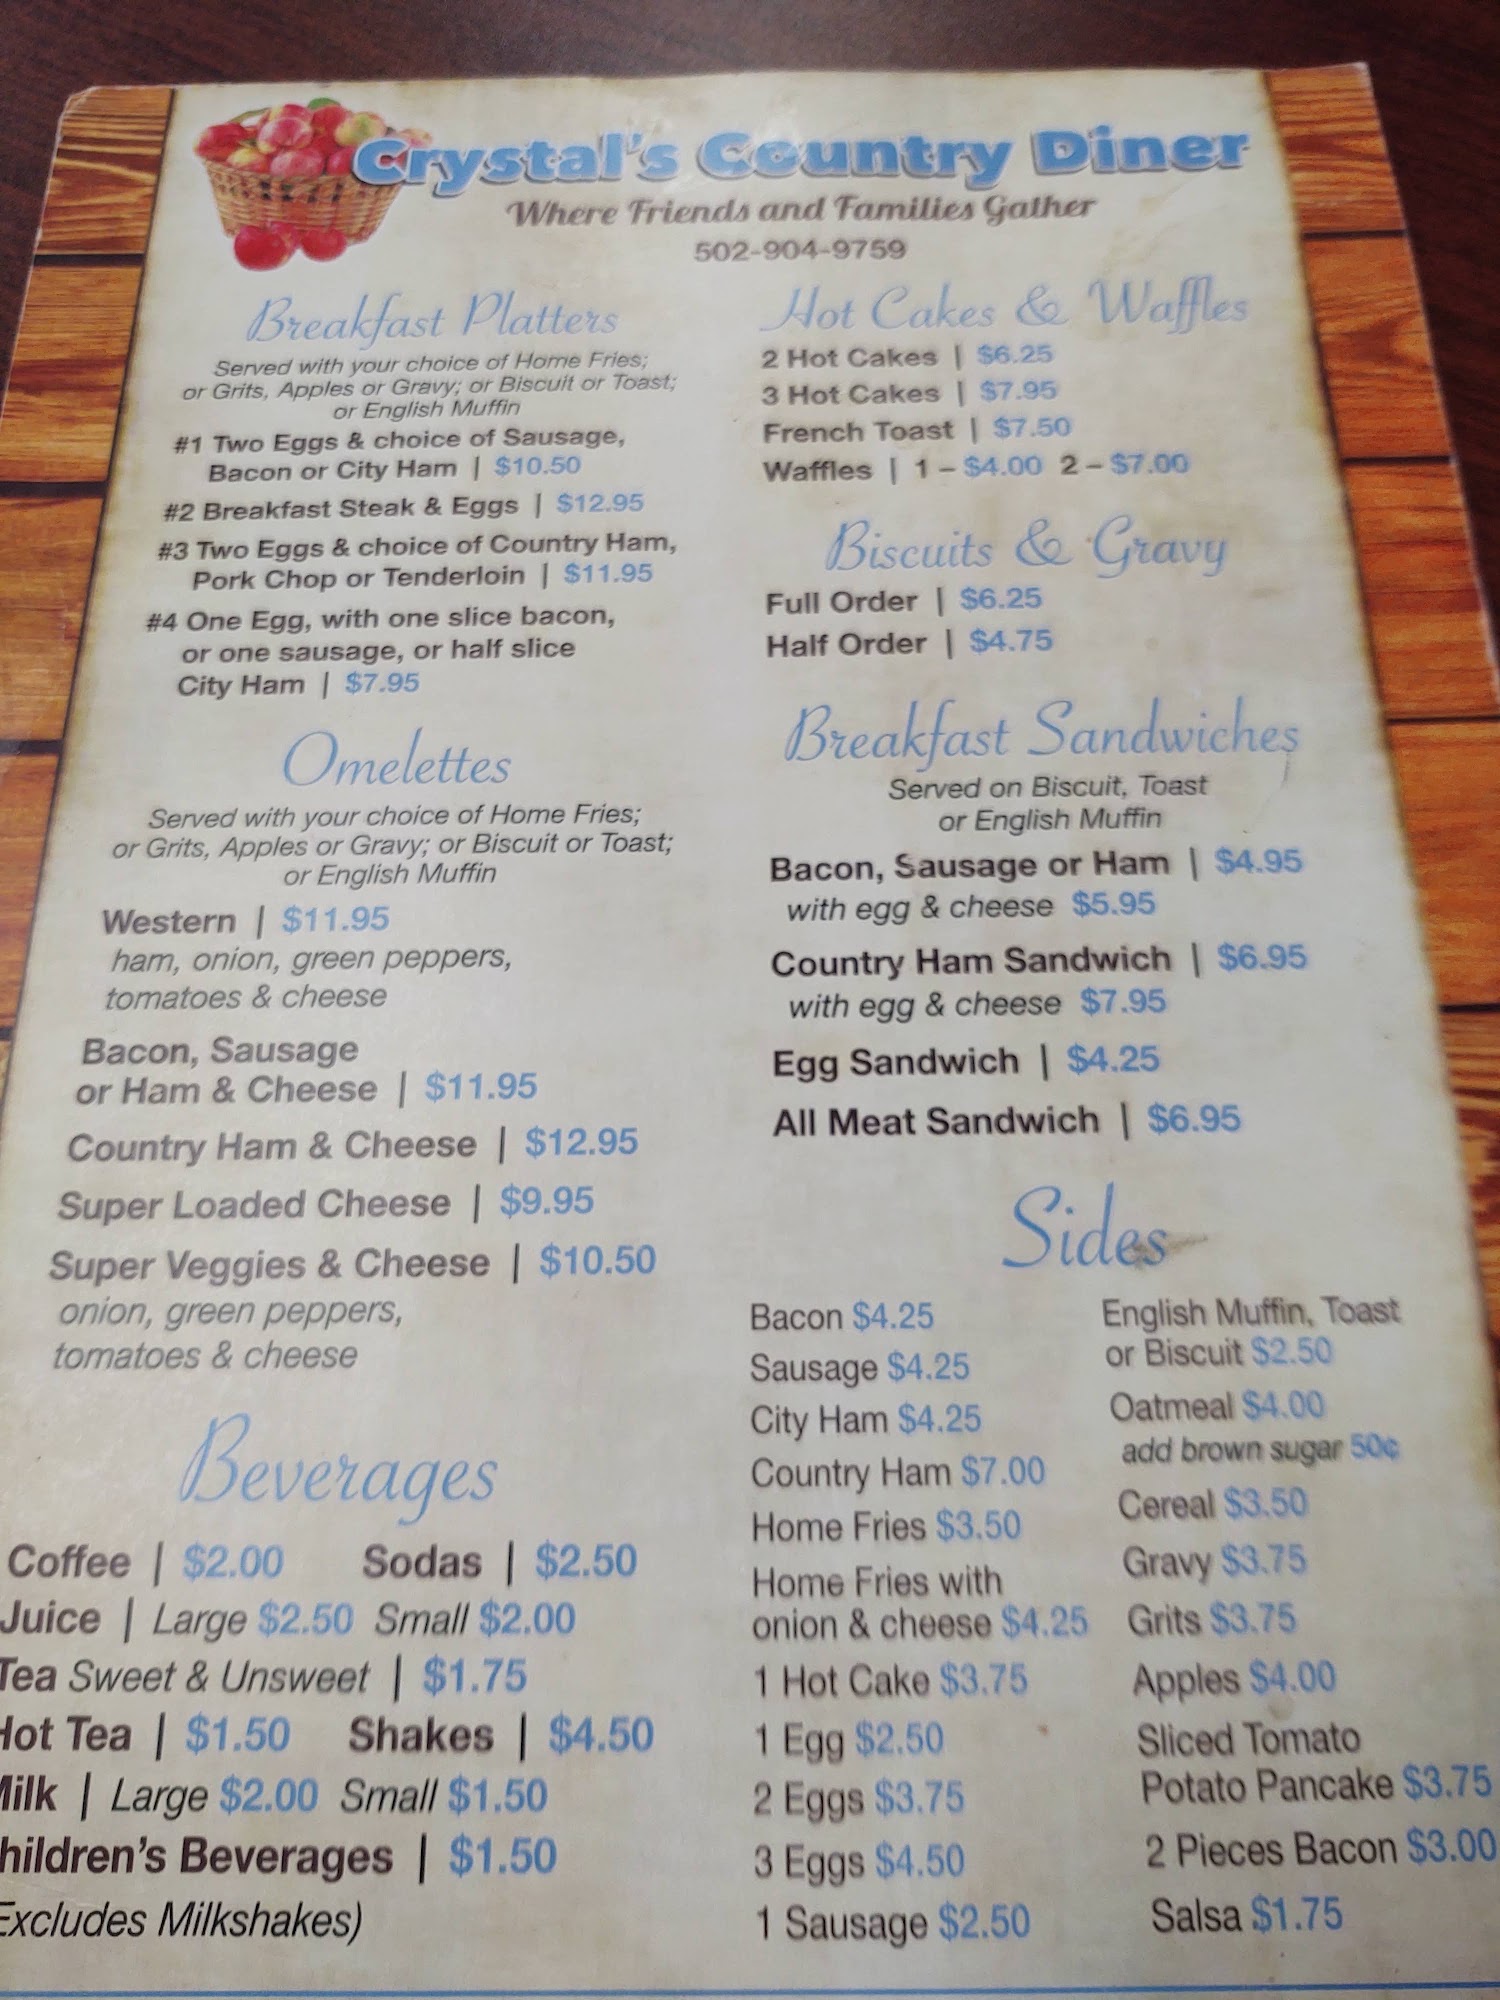 Crystal's Country Diner
Where Friends and Families Gather
502-904-9759
Breakfast Platters
Served with your choice of Home Fries;
or Grits, Apples or Gravy; or Biscuit or Toast;
or English Muffin
#1 Two Eggs & choice of Sausage,
Bacon or City Ham | $10.50
#2 Breakfast Steak & Eggs | $12.95
#3 Two Eggs & choice of Country Ham,
Pork Chop or Tenderloin | $11.95
#4 One Egg, with one slice bacon,
or one sausage, or half slice
City Ham | $7.95
Omelettes
Served with your choice of Home Fries;
or Grits, Apples or Gravy; or Biscuit or Toast;
or English Muffin
Western | $11.95
ham, onion, green peppers,
tomatoes & cheese
Bacon, Sausage
or Ham & Cheese | $11.95
Country Ham & Cheese | $12.95
Super Loaded Cheese | $9.95
Super Veggies & Cheese | $10.50
onion, green peppers,
tomatoes & cheese
Beverages
Coffee | $2.00 Sodas | $2.50
Juice | Large $2.50 Small $2.00
Tea Sweet & Unsweet | $1.75
Hot Tea | $1.50 Shakes | $4.50
Milk | Large $2.00 Small $1.50
hildren's Beverages | $1.50
Excludes Milkshakes)
Hot Cakes & Waffles
2 Hot Cakes | $6.25
3 Hot Cakes | $7.95
French Toast | $7.50
Waffles | 1 – $4.00 2 – $7.00
Biscuits & Gravy
Full Order | $6.25
Half Order | $4.75
Breakfast Sandwiches
Served on Biscuit, Toast
or English Muffin
Bacon, Sausage or Ham | $4.95
with egg & cheese $5.95
Country Ham Sandwich | $6.95
with egg & cheese $7.95
Egg Sandwich | $4.25
All Meat Sandwich | $6.95
Sides
Bacon $4.25
Sausage $4.25
City Ham $4.25
Country Ham $7.00
Home Fries $3.50
Home Fries with
onion & cheese $4.25
1 Hot Cake $3.75
1 Egg $2.50
2 Eggs $3.75
3 Eggs $4.50
1 Sausage $2.50
English Muffin, Toast
or Biscuit $2.50
Oatmeal $4.00
add brown sugar 50¢
Cereal $3.50
Gravy $3.75
Grits $3.75
Apples $4.00
Sliced Tomato
Potato Pancake $3.75
2 Pieces Bacon $3.00
Salsa $1.75